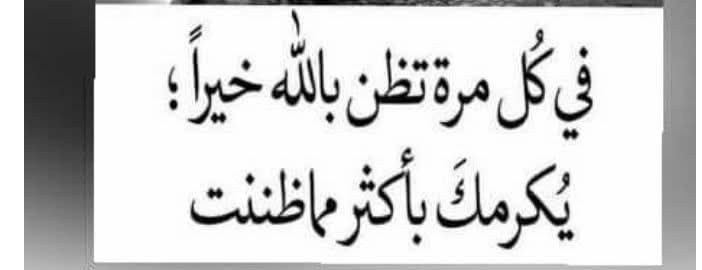 في كُل مرة تظن بالله خيراً ؛
يُكرمكَ بأكثر مماظننت